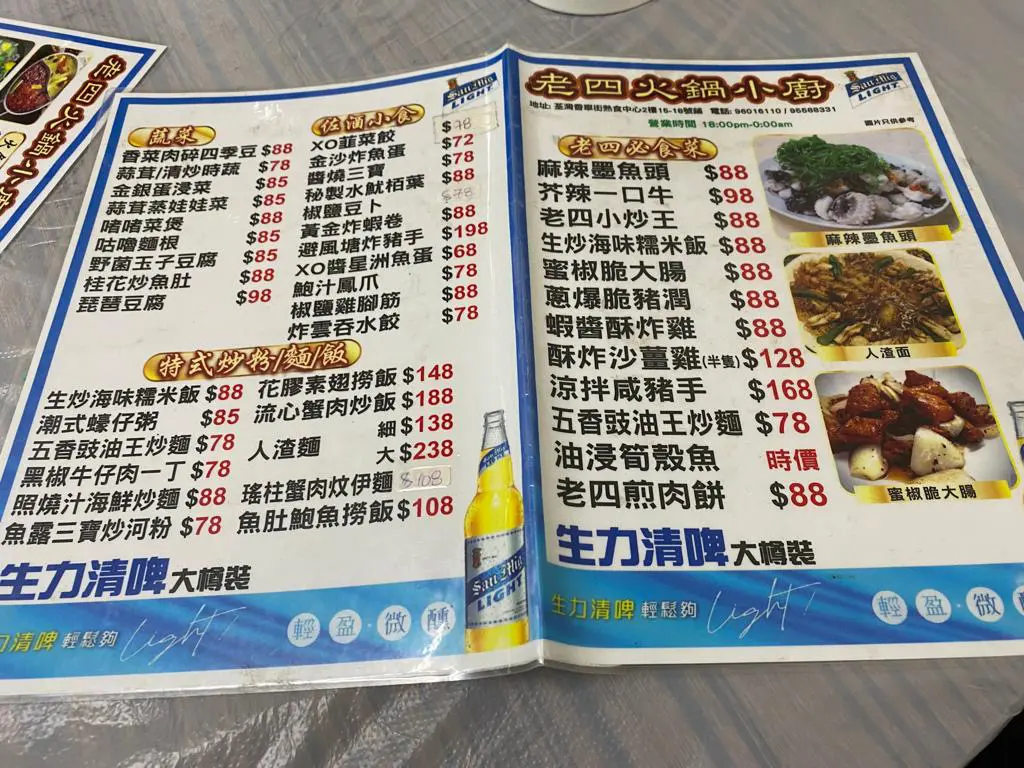 老四火鍋小
San Mig
LIGHT
蔬菜
香菜肉碎四季豆 $88
蒜茸/清炒時蔬 $78
金銀蛋浸菜 $85
蒜茸蒸娃娃菜 $85
啫啫菜煲 $88
咕嚕麵根 $85
野菌玉子豆腐 $85
桂花炒魚肚 $88
琵琶豆腐 $98
佐酒小食
XO韮菜餃 $78
金沙炸魚蛋 $72
醬燒三寶 $78
秘製水魷栢葉 $88
椒鹽豆卜 $78
黃金炸蝦卷 $88
避風塘炸豬手 $198
XO醬星洲魚蛋 $68
鮑汁鳳爪 $78
椒鹽雞腳筋 $88
炸雲吞水餃 $78
特式炒粉/麵/飯
生炒海味糯米飯 $88
潮式蠔仔粥 $85
五香豉油王炒麵 $78
黑椒牛仔肉一丁 $78
照燒汁海鮮炒麵 $88
魚露三寶炒河粉 $78
花膠素翅撈飯 $148
流心蟹肉炒飯 $188
人渣麵 細 $138
大 $238
瑤柱蟹肉炆伊麵 $108
魚肚鮑魚撈飯 $108
生力清啤 大樽裝
生力清啤 輕鬆夠 Light!
輕盈·微醺
San Mig
LIGHT
老四火鍋小廚
San Mig
LIGHT
地址: 荃灣香車街熟食中心2樓15-16號鋪 電話: 96016110 / 95668331
營業時間 18:00pm-0:00am
圖片只供參考
老四必食菜
麻辣墨魚頭 $88
芥辣一口牛 $98
老四小炒王 $88
生炒海味糯米飯 $88
蜜椒脆大腸 $88
蔥爆脆豬潤 $88
蝦醬酥炸雞 $88
酥炸沙薑雞(半隻) $128
涼拌咸豬手 $168
五香豉油王炒麵 $78
油浸筍殼魚 時價
老四煎肉餅 $88
麻辣墨魚頭
人渣面
蜜椒脆大腸
生力清啤 大樽裝
生力清啤 輕鬆夠 Light!
輕盈·微